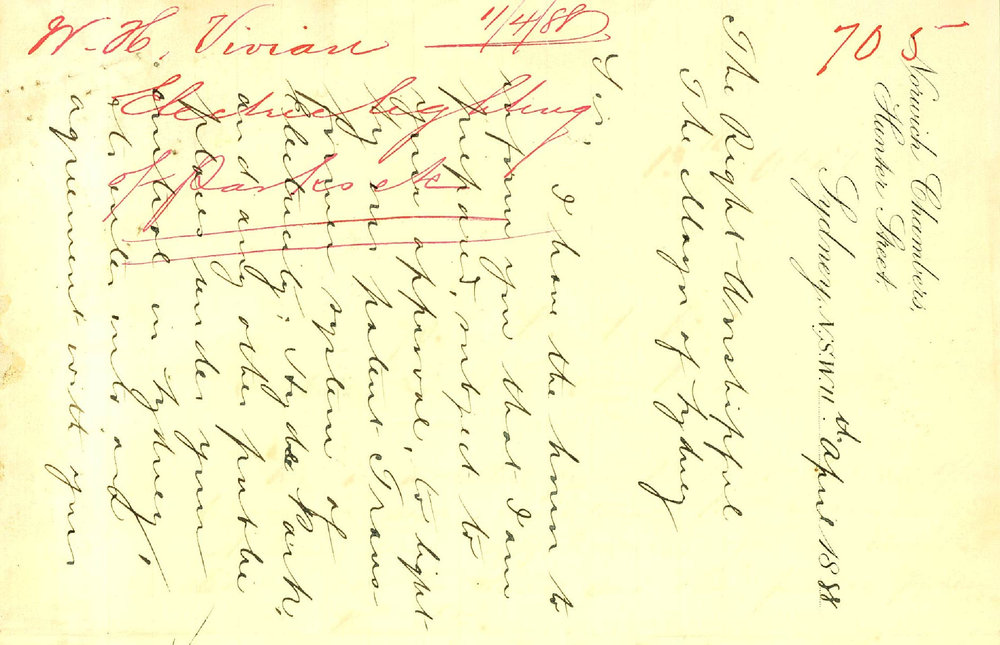 W. H. Vivian 11/4/88
Electric Lighting
of Parks etc
705
Norwich Chambers,
Hunter Street.
Sydney, N.S.W. 11th April 1888
The Right Worshipful
The Mayor of Sydney
Sir,
I have the honor to
inform you that I am
prepared, subject to
your approval, to light
by my patent Trans-
former system of
Electricity, Hyde Park,
and any other public
places under your
control in Sydney,
& to enter into an
agreement with your